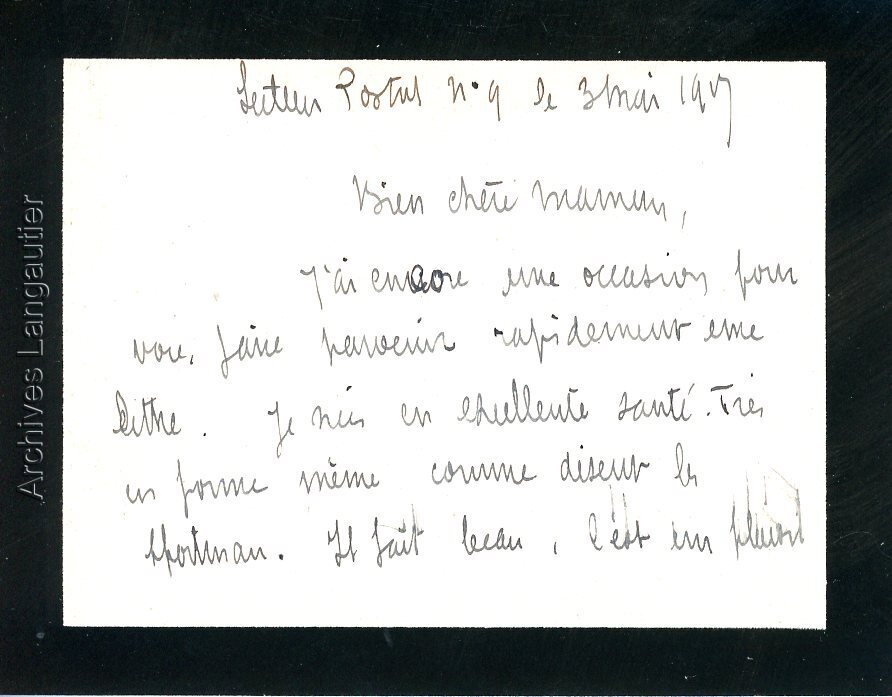 Secteur Postal N° 9 le 3 Mai 1917
Bien chère Maman,
J'ai encore une occasion pour
vous faire parvenir rapidement une
lettre. Je suis en excellente santé. Très
en forme même comme disent les
sportman. Il fait beau, c'est un plaisir
Archives Langautier